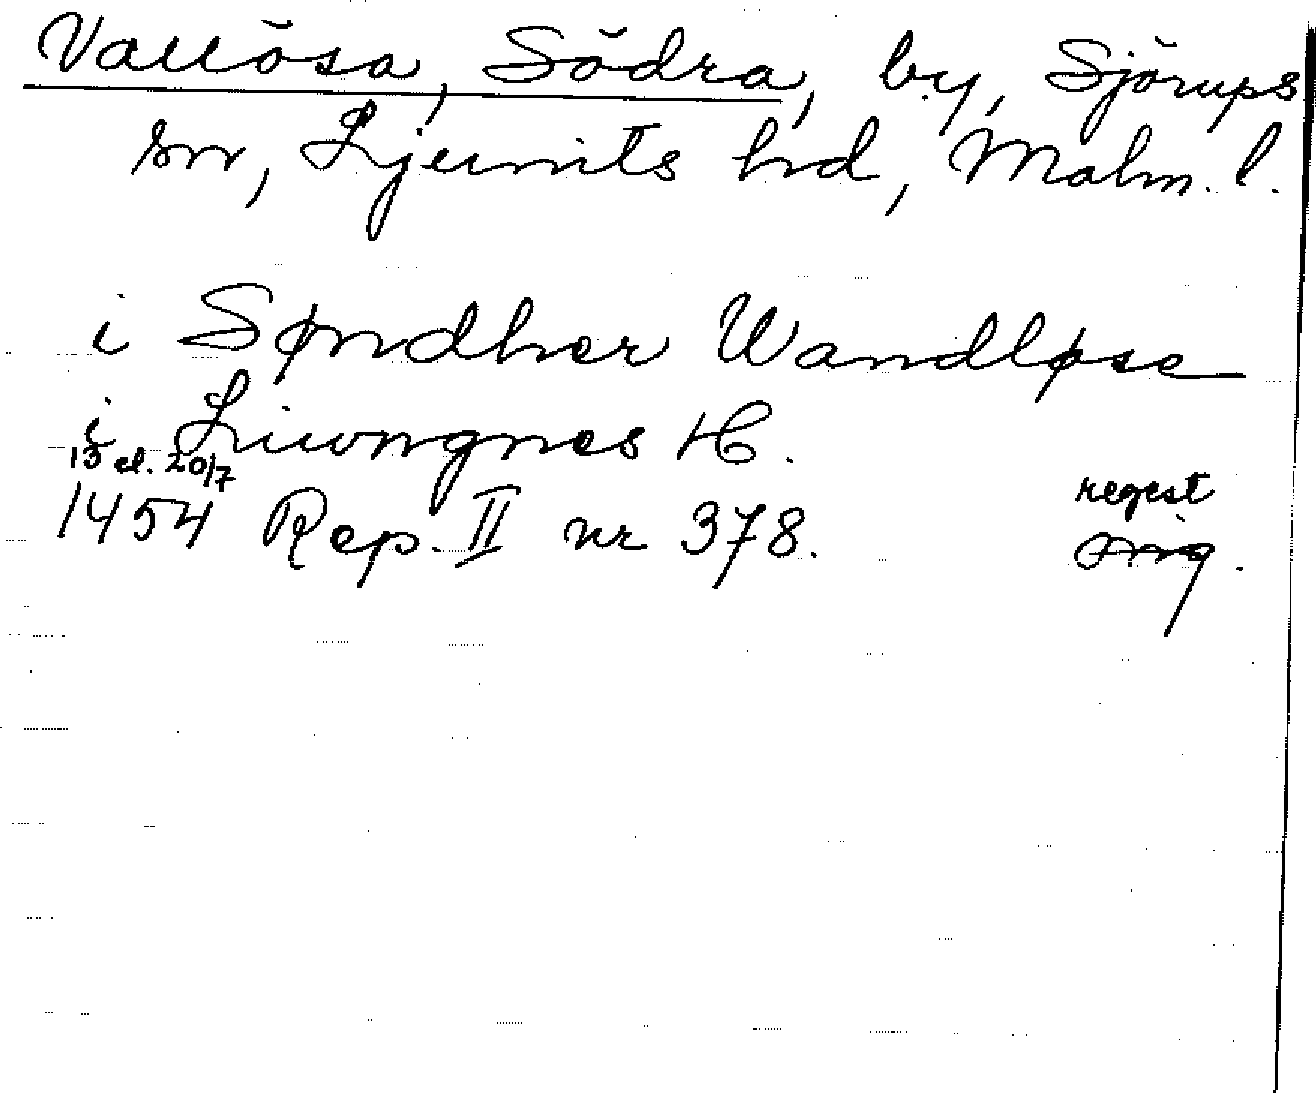 Vallösa, Södra, by, Sjörups
sn, Ljunits hd, Malm. l.
i Søndher Wandløse
i Liwngnes H.
13 el. 20/7
1454 Rep. II nr 378. regest
orig.